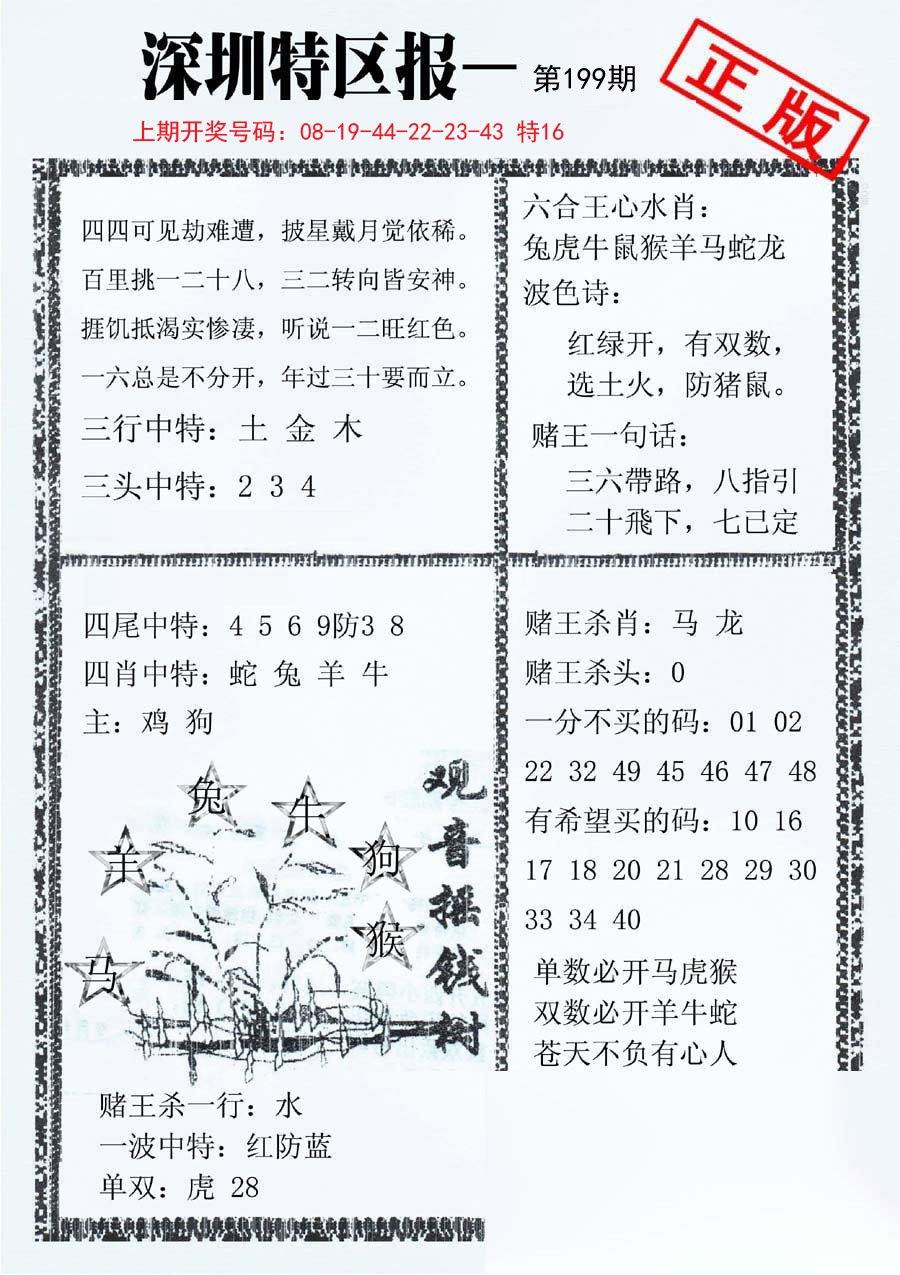 深圳特区报— 第199期
正版
上期开奖号码：08-19-44-22-23-43 特16
四四可见劫难遭，披星戴月觉依稀。
百里挑一二十八，三二转向皆安神。
捱饥抵渴实惨凄，听说一二旺红色。
一六总是不分开，年过三十要而立。
三行中特：土 金 木
三头中特：2 3 4
六合王心水肖：
兔虎牛鼠猴羊马蛇龙
波色诗：
红绿开，有双数，
选土火，防猪鼠。
赌王一句话：
三六帶路，八指引
二十飛下，七已定
四尾中特：4 5 6 9防3 8
四肖中特：蛇 兔 羊 牛
主：鸡 狗
兔
牛
羊
狗
猴
马
观音摇钱树
赌王杀一行：水
一波中特：红防蓝
单双：虎 28
赌王杀肖：马 龙
赌王杀头：0
一分不买的码：01 02
22 32 49 45 46 47 48
有希望买的码：10 16
17 18 20 21 28 29 30
33 34 40
单数必开马虎猴
双数必开羊牛蛇
苍天不负有心人